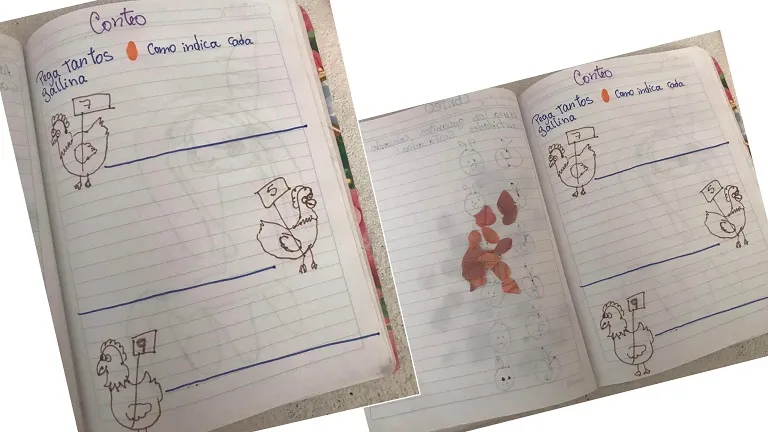 Conteo
Pega Tantos Como indica cada
gallina
7
5
9
Conteo
Pega Tantos Como indica cada
gallina
7
5
9